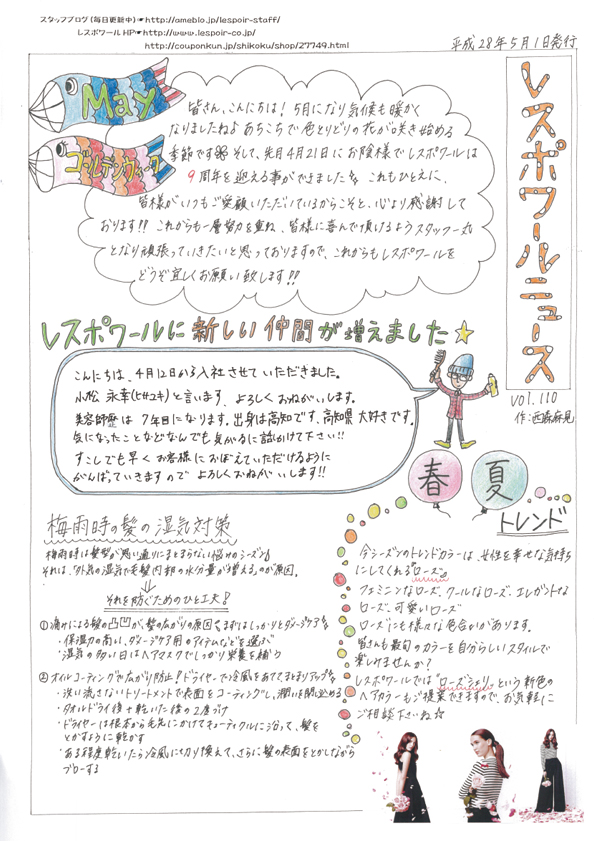 スタッフブログ(毎日更新中)☛http://ameblo.jp/lespoir-staff/
レスポワールHP☛http://www.lespoir-co.jp/
http://couponkun.jp/shikoku/shop/27749.html
平成28年5月1日発行
レスポワールニュース
vol.110
作:西森麻見
May
ゴールデンウィーク
皆さん、こんにちは！5月になり気候も暖かく
なりましたねよ あちこちで色とりどりの花が咲き始める
季節です そして、先月4月21日にお陰様でレスポワールは
9周年を迎える事ができました これもひとえに、
皆様がいつもご愛顧いただいているからこそと、心より感謝して
おります!! これからも一層努力を重ね、皆様に喜んで頂けるようスタッフ一丸
となり頑張っていきたいと思っておりますので、これからもレスポワールを
どうぞ宜しくお願い致します!!
レスポワールに新しい仲間が増えました☆
こんにちは、4月12日から入社させていただきました。
小松 永幸(ヒサユキ)と言います、よろしくおねがいします。
美容師歴は 7年目になります。出身は高知です、高知県大好きです。
気になったことなどなんでも気がるに話かけて下さい!!
すこしでも早く お客様におぼえていただけるように
がんばっていきますので よろしくおねがいします!!
春 夏
トレンド
梅雨時の髪の湿気対策
梅雨時は髪型が思い通りにまとまらない悩みのシーズン!
それは、「外気の湿気で毛髪内部の水分量が増える」のが原因。
それを防ぐためのひと工夫!
①痛みによる髪の凸凹が、髪の広がりの原因でまずはしっかりとダメージケア
・保湿力の高い、ダメージケア用のアイテムなどを選ぶ
・湿気の多い日はヘアマスクでしっかり栄養を補う
②オイルコーティングで広がり防止!ドライヤーで冷風をあててまとまりアップ
・洗い流さないトリートメントで表面をコーティングし、潤いを閉じ込める
・タオルドライ後+乾いた後の2度づけ
・ドライヤーは根本から毛先にかけてキューティクルに沿って、髪を
とかすように乾かす
・ある程度乾いたら冷風に切り換えて、さらに髪の表面をとかしながら
ブローする
今シーズンのトレンドカラーは、女性を幸せな気持ち
にしてくれる"ローズ"。
フェミニンなローズ、クールなローズ、エレガントな
ローズ、可愛いローズ
ローズにも様々な色合いがあります。
皆さんも最旬のカラーを自分らしいスタイルで
楽しみませんか?
レスポワールでは"ローズシェリ"という新色の
ヘアカラーもご提案できますので、お気軽に
ご相談下さいね☆